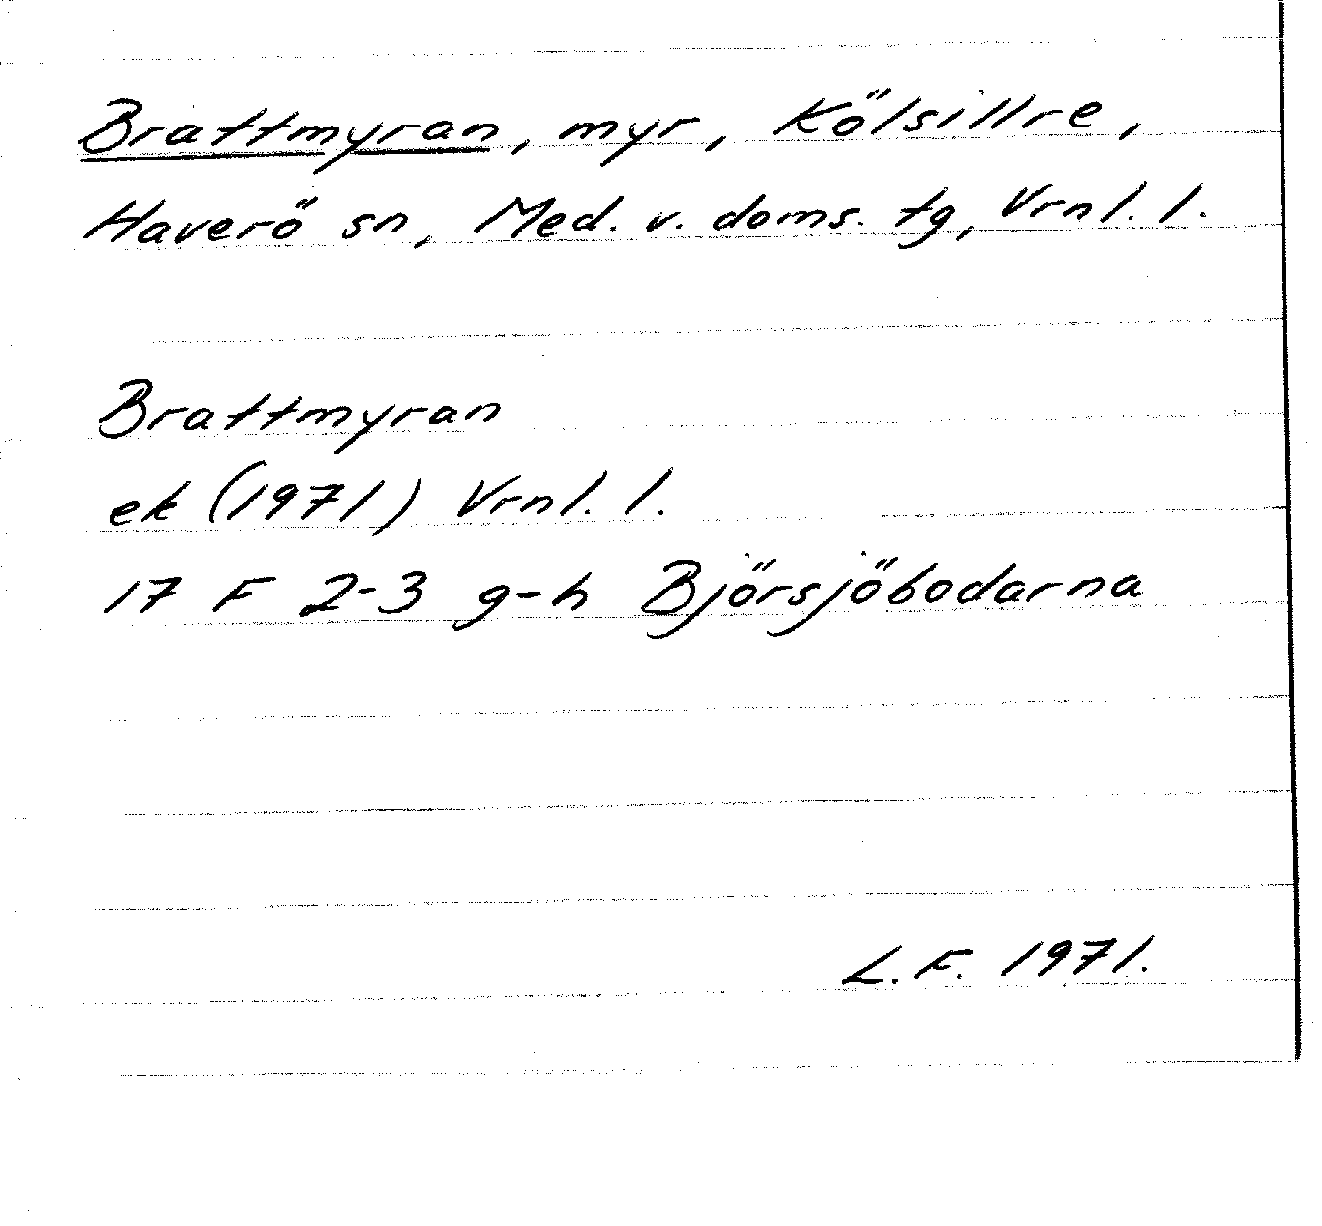 Brattmyran, myr, Kölsillre,
Haverö sn, Med. v. doms. tg, Vrnl. l.
Brattmyran
ek (1971) Vrnl. l.
17 F 2-3 g-h Björsjöbodarna
L. F. 1971.